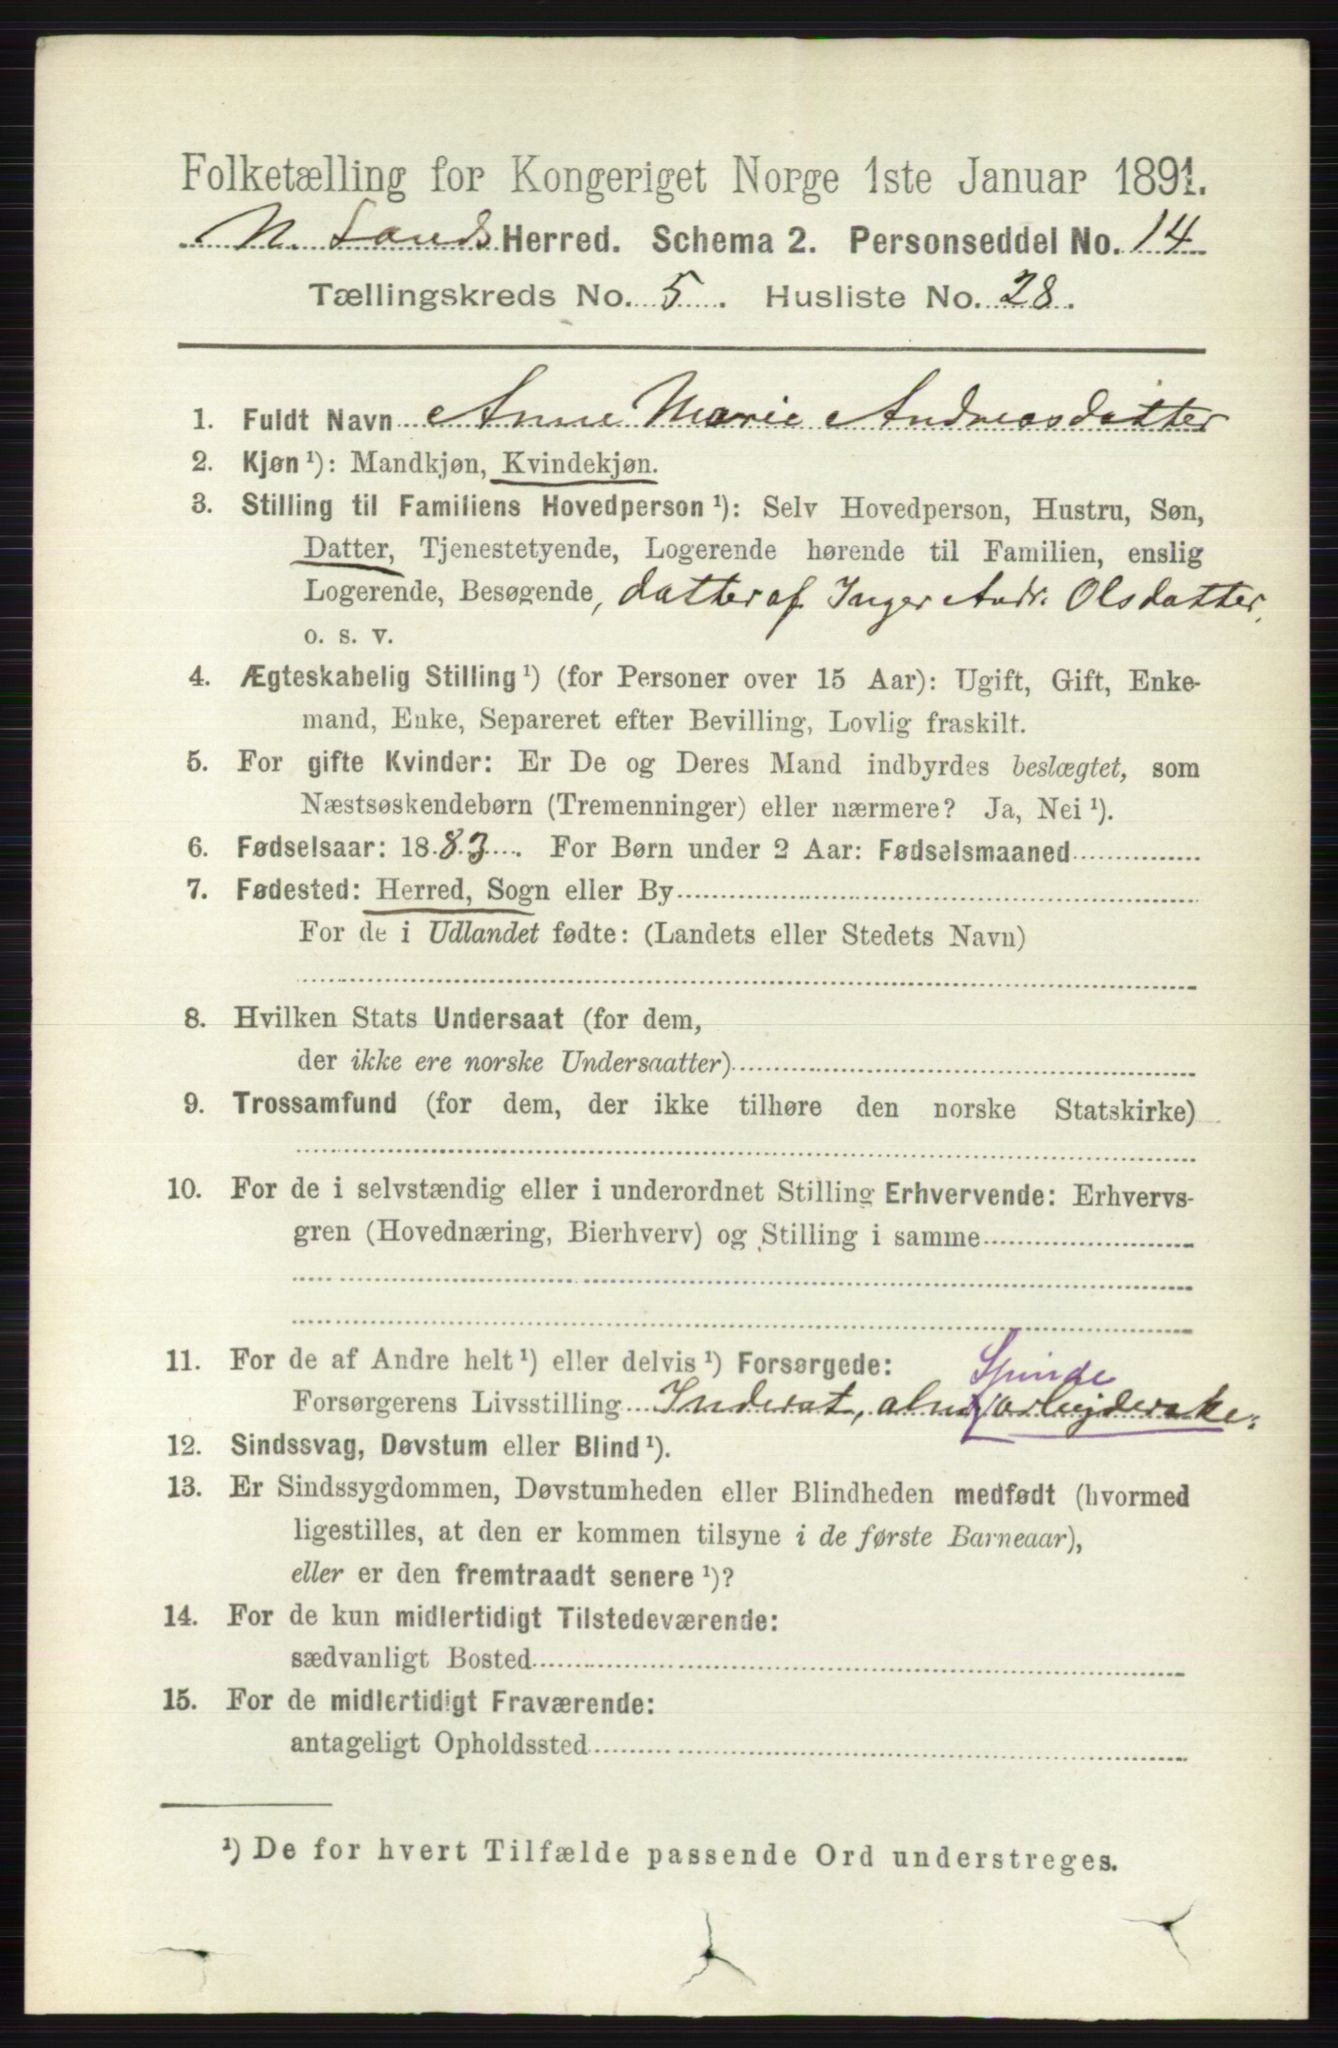 Folketælling for Kongeriget Norge 1ste Januar 1891.
N. Lands Herred. Schema 2. Personseddel No. 14
Tællingskreds No. 5. Husliste No. 28.
1. Fuldt Navn Anne Marie Andreasdatter
2. Kjøn ¹): Mandkjøn, Kvindekjøn.
3. Stilling til Familiens Hovedperson ¹): Selv Hovedperson, Hustru, Søn,
Datter, Tjenestetyende, Logerende hørende til Familien, enslig
Logerende, Besøgende, datter af Inger Andr. Olsdatter.
o. s. v.
4. Ægteskabelig Stilling ¹) (for Personer over 15 Aar): Ugift, Gift, Enke-
mand, Enke, Separeret efter Bevilling, Lovlig fraskilt.
5. For gifte Kvinder: Er De og Deres Mand indbyrdes beslægtet, som
Næstsøskendebørn (Tremenninger) eller nærmere? Ja, Nei ¹).
6. Fødselsaar: 1883. For Børn under 2 Aar: Fødselsmaaned
7. Fødested: Herred, Sogn eller By
For de i Udlandet fødte: (Landets eller Stedets Navn)
8. Hvilken Stats Undersaat (for dem,
der ikke ere norske Undersaatter)
9. Trossamfund (for dem, der ikke tilhøre den norske Statskirke)
10. For de i selvstændig eller i underordnet Stilling Erhvervende: Erhvervs-
gren (Hovednæring, Bierhverv) og Stilling i samme
11. For de af Andre helt ¹) eller delvis ¹) Forsørgede: Spinde
Forsørgerens Livsstilling Inderst, alm. arbejderske.
12. Sindssvag, Døvstum eller Blind ¹).
13. Er Sindssygdommen, Døvstumheden eller Blindheden medfødt (hvormed
ligestilles, at den er kommen tilsyne i de første Barneaar),
eller er den fremtraadt senere ¹)?
14. For de kun midlertidigt Tilstedeværende:
sædvanligt Bosted
15. For de midlertidigt Fraværende:
antageligt Opholdssted
¹) De for hvert Tilfælde passende Ord understreges.